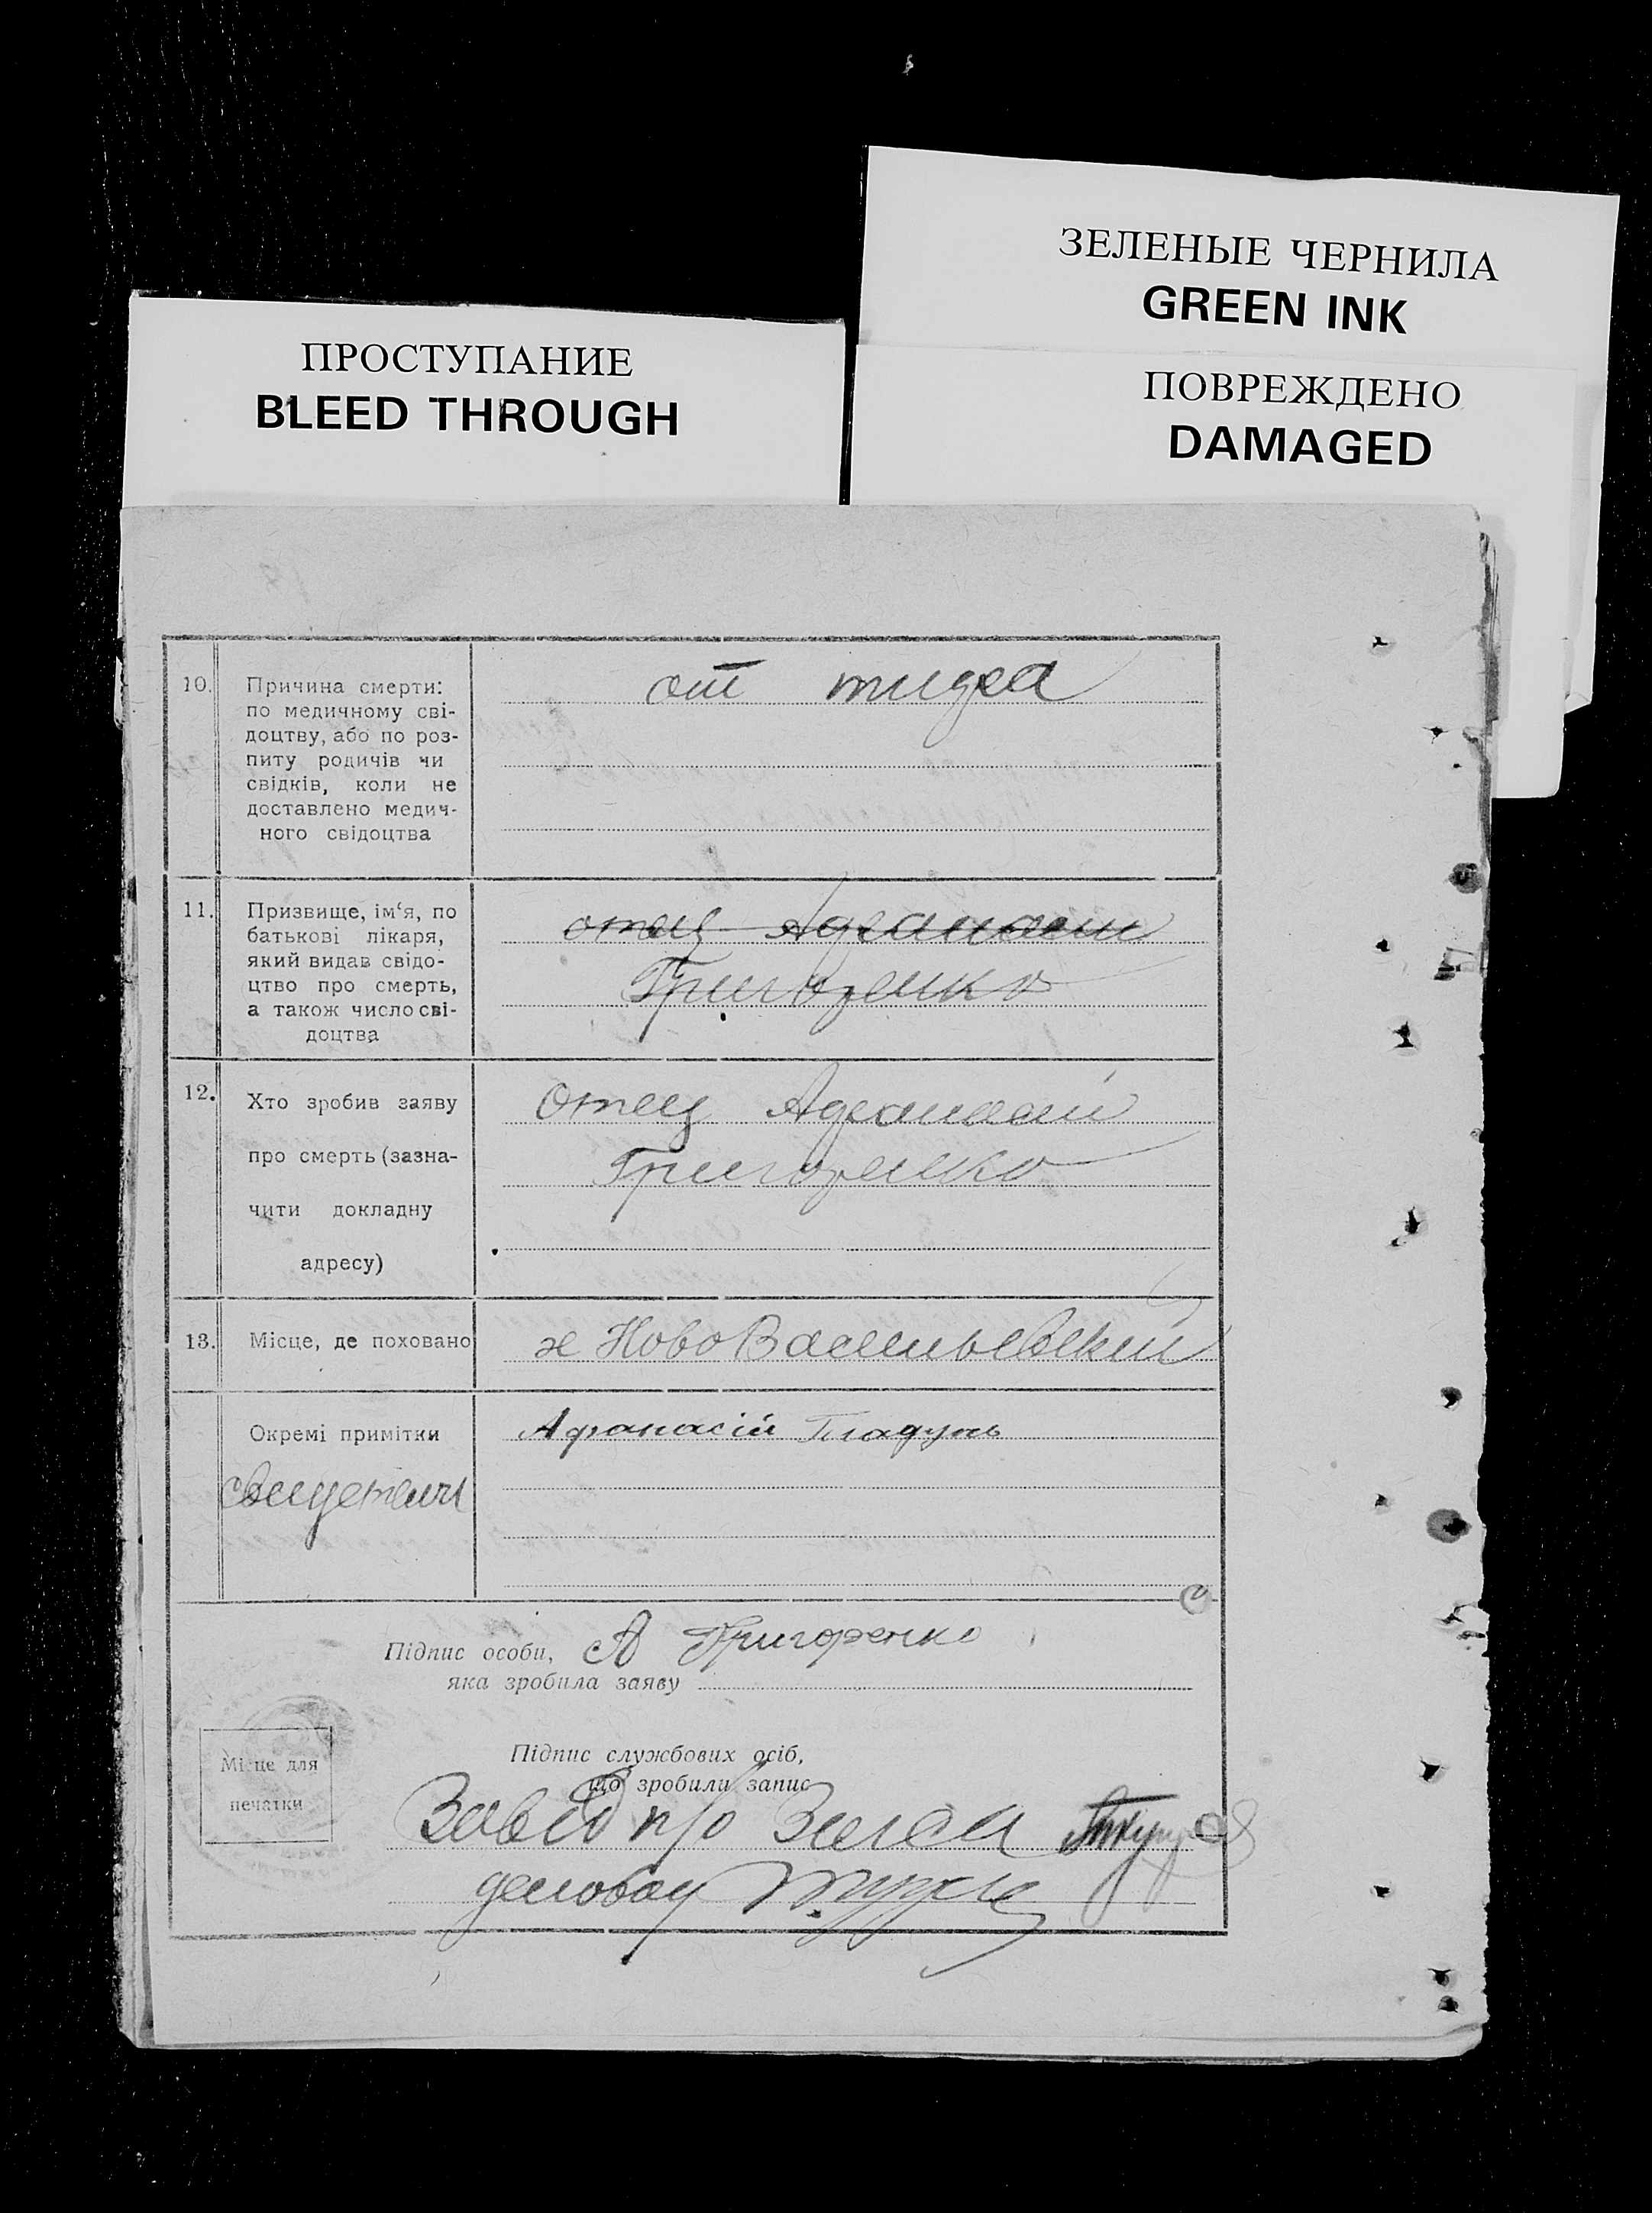 ЗЕЛЕНЫЕ ЧЕРНИЛА
GREEN INK
ПРОСТУПАНИЕ
BLEED THROUGH
ПОВРЕЖДЕНО
DAMAGED
10. Причина смерти:
по медичному сві-
доцтву, або по роз-
питу родичів чи
свідків, коли не
доставлено медич-
ного свідоцтва
от тифа
11. Призвище, ім'я, по
батькові лікаря,
який видав свідо-
цтво про смерть,
а також число сві-
доцтва
отец Афанасий
Григоренко
12. Хто зробив заяву
про смерть (зазна-
чити докладну
адресу)
Отец Афанасий
Григоренко
13. Місце, де поховано
х НовоВасильевский
Окремі примітки
свидетели
Афанасій Гладунь
Підпис особи,
яка зробила заяву
А Григоренко
Місце для
печатки
Підпис службових осіб,
що зробили запис
Завед п/о Загса
деловод